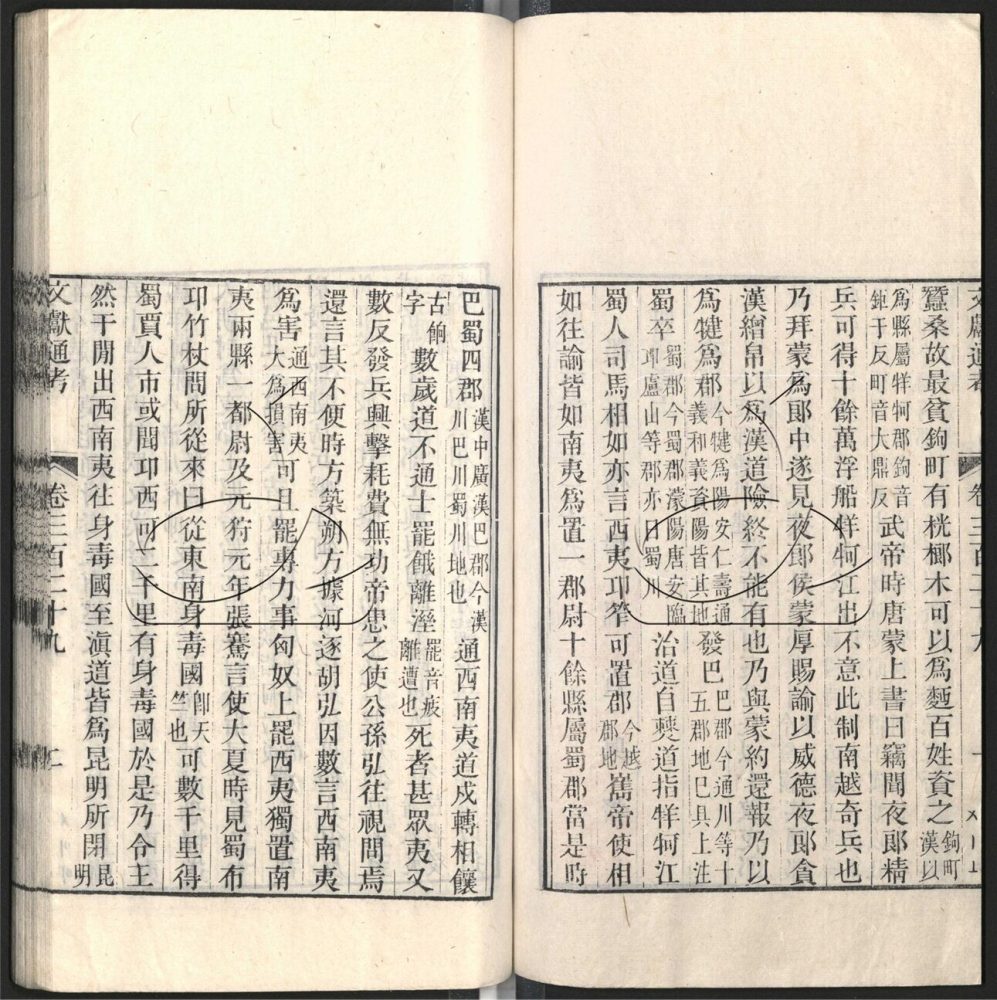 蠶桑故最貧鉤町有桄榔木可以爲麪百姓資之鉤町漢以
爲縣屬牂牁郡鉤音鉅于反町音大鼎反武帝時唐蒙上書曰竊聞夜郎精
兵可得十餘萬浮船牂牁江出不意此制南越奇兵也
乃拜蒙爲郎中遂見夜郎侯蒙厚賜諭以威德夜郎貪
漢繒帛以爲漢道險終不能有也乃與蒙約還報乃以
爲犍爲郡今犍爲陽安仁壽通義和義資陽皆其地發巴巴郡今通川等十五郡地巳具上注
蜀卒蜀郡今蜀郡濛陽唐安臨邛盧山等郡亦曰蜀川治道自僰道指牂牁江
蜀人司馬相如亦言西夷邛筰可置郡今越巂郡地帝使相
如往諭皆如南夷爲置一郡尉十餘縣屬蜀郡當是時
巴蜀四郡漢中廣漢巴郡今漢川巴川蜀川地也通西南夷道戍轉相饟
古餉字數歲道不通士罷餓離溼罷音疲離遭也死者甚眾夷又
數反發兵興擊耗費無功帝患之使公孫弘往視問焉
還言其不便時方築朔方據河逐胡弘因數言西南夷
爲害通西南夷大爲損害可且罷專力事匈奴上罷西夷獨置南
夷兩縣一都尉及元狩元年張騫言使大夏時見蜀布
邛竹杖問所從來曰從東南身毒國卽天竺也可數千里得
蜀賈人市或聞邛西可二千里有身毒國於是乃令王
然于閒出西南夷往身毒國至滇道皆爲昆明所閉昆明
文獻通考 卷三百二十九 二